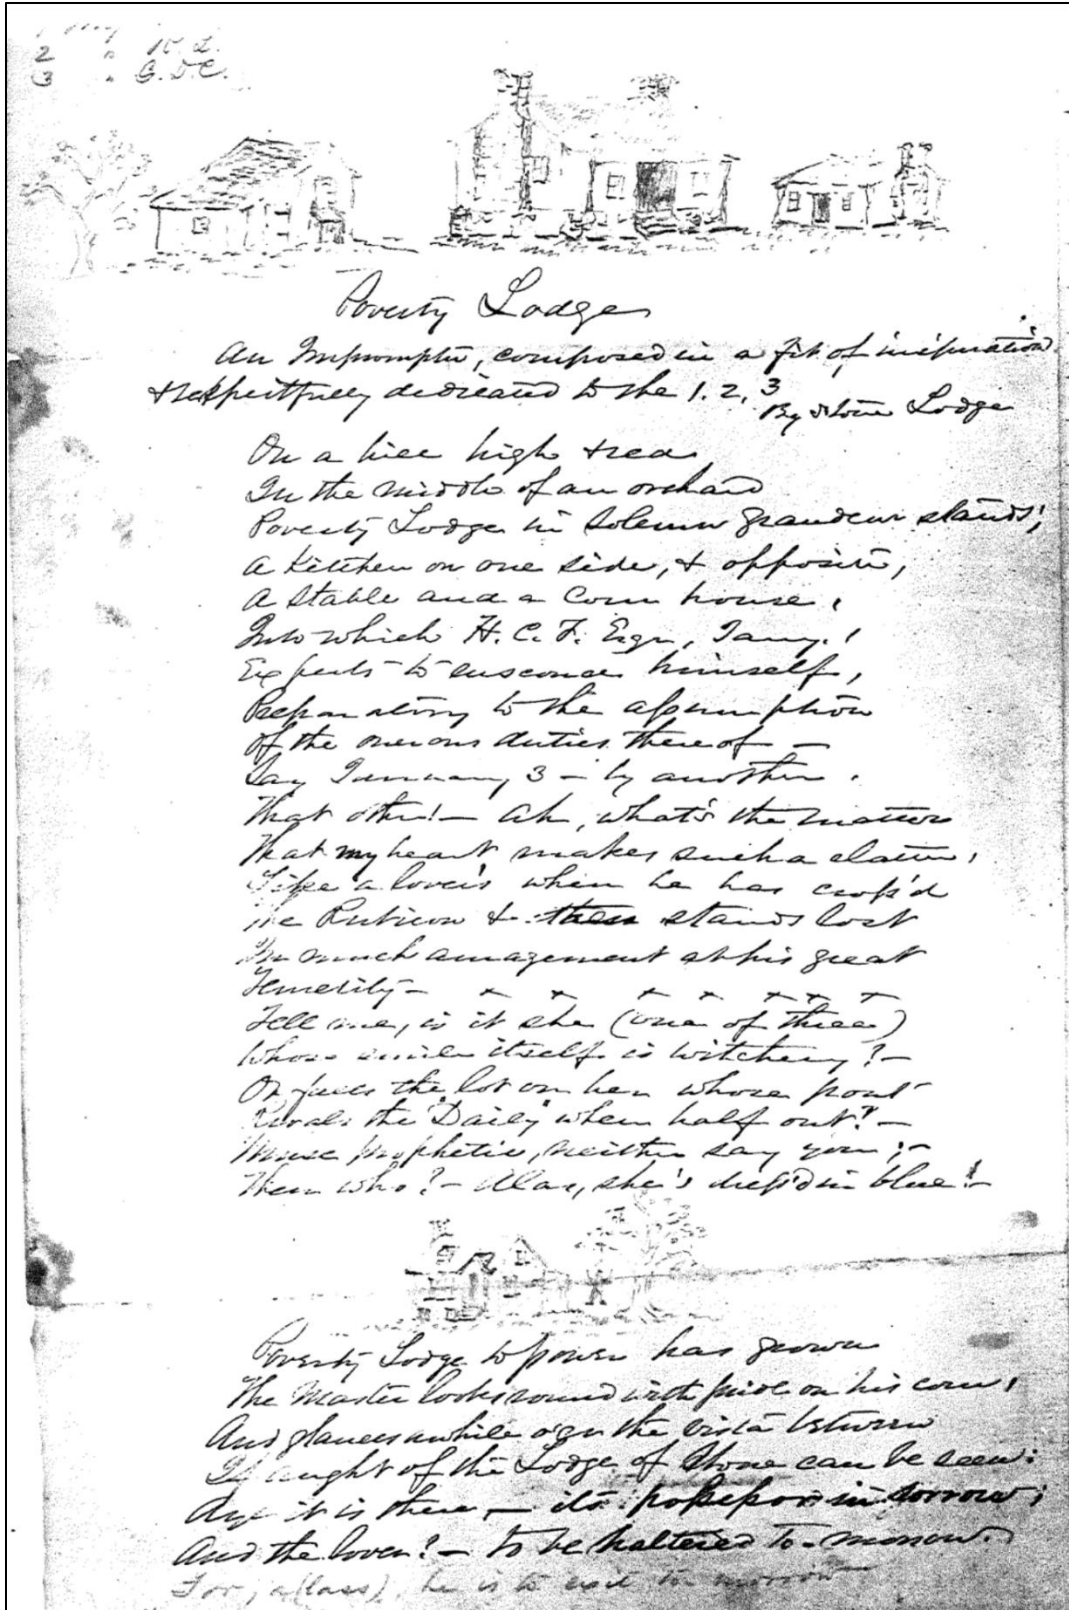 2 " K. L.
3 " G. D. C.
Poverty Lodge
An Impromptu, composed in a fit of inspiration
& respectfully dedicated to the 1. 2, 3
By Stone Lodge
On a hill high & red
In the middle of an orchard
Poverty Lodge in solemn grandeur stands;
A kitchen on one side, & opposite,
A stable and a corn house,
Into which H. C. F. Esqr,
Expects to ensconce himself,
Preparatory to the assumption
Of the onerous duties thereof —
Say January 3 — by another.
That other! — Ah, what's the matter
That my heart makes such a clatter,
Like a lover's when he has cross'd
the Rubicon & then stands lost
In much amazement at his great
Temerity — x x x x x x x
Tell me, is it she (one of three)
Whose smile itself is witchery? —
Or falls the lot on her whose pout
Rivals the "Daily" when half out? —
Muse prophetic, neither say you; —
Then who? — Alas, she's dress'd in blue! —
Poverty Lodge to power has grown
The Master looks round with pride on his corn,
And glances awhile o'er the vista between
If aught of the Lodge of Stone can be seen:
Aye it is there — its possessor in sorrow;
And the lover? — to be haltered to-morrow.
For, a(lass), he is to to morrow